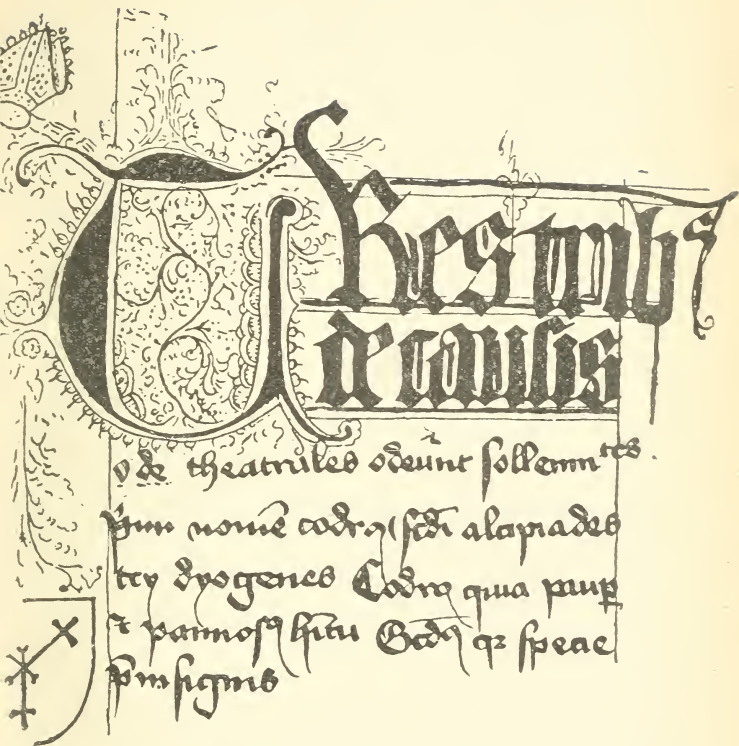 Tres tribꝰ
de causis
v de theatrales odeūnt sollemnites
pim nomē codrꝰ scd̄i alcipiades
tcy dyogenes Codrꝰ quia paup̱
⁊ pannosꝰ hītu Scdꝰ qꝛ specie
p̄insignis